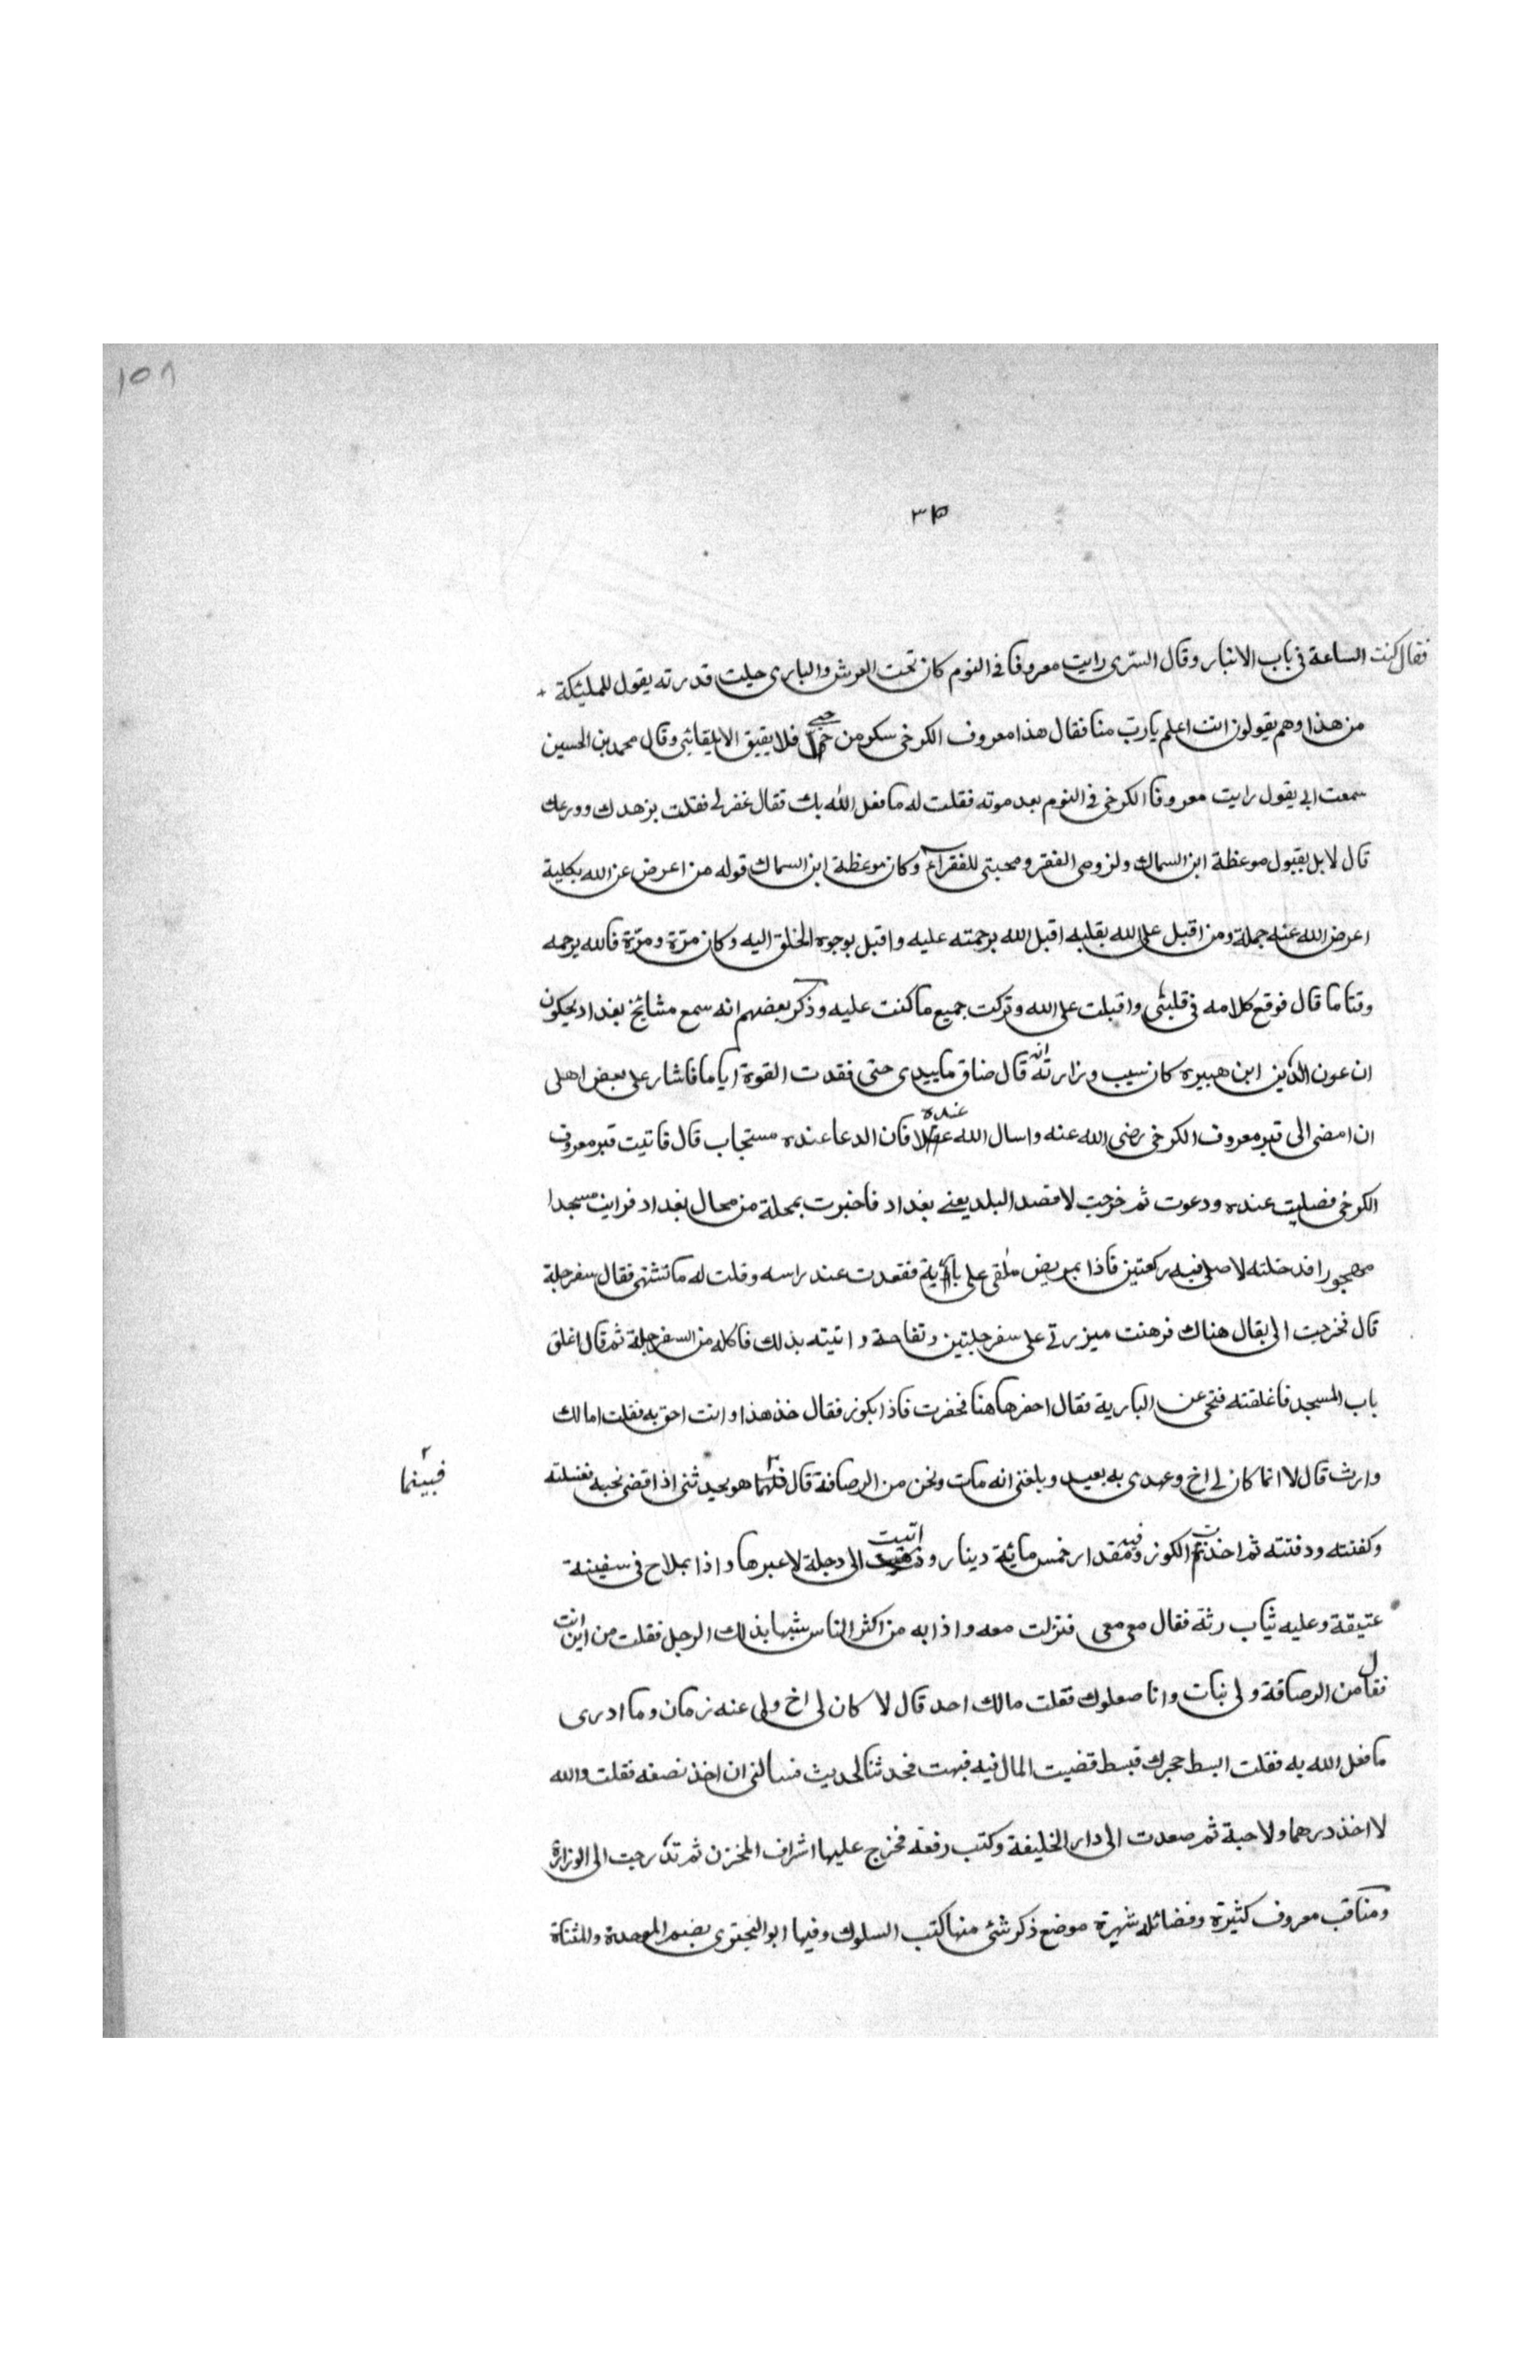 ١٥٨
٣٢
فقال كنت الساعة في باب الانبار وقال السرى رايت معروفا في النوم كان تحت العرش والبارى جلت قدرته يقول للمليكة
من هذا وهم يقولون انت اعلم يارب منا فقال هذا معروف الكرخى سكر من حبي فلا يفيق الا بلقائي وقال محمد بن الحسين
سمعت ابي يقول رايت معروفا الكرخى في النوم بعد موته فقلت له ما فعل الله بك فقال غفر لى فقلت بزهدك وورعك
قال لا بل بقبول موعظة ابن السماك ولزومى الفقر ومحبتى للفقراء وكان موعظة ابن السماك قوله من اعرض عن الله بكلية
اعرض الله عنه جملة ومن اقبل على الله بقلبه اقبل الله برحمته عليه واقبل بوجوه الخلق اليه وكان مرّة ومرّة فالله يرحمه
وقتا ما قال فوقع كلامه في قلبى واقبلت على الله وتركت جميع ما كنت عليه وذكر بعضهم انه سمع مشائخ بغداد يحكون
ان عون الدين ابن هبيره كان سبب وزارته انه قال ضاق ما بيدى حتى فقدت القوة اياما فاشار على بعض اهلى
ان امضى الى قبر معروف الكرخى رضى الله عنه واسال الله عنده فان الدعا عنده مستجاب قال فاتيت قبر معروف
الكرخى فصليت عنده ودعوت ثم خرجت لاقصد البلد يعنے بغداد فاخبرت بمحلة من محال بغداد فرايت مسجدا
مهجورا فدخلته لاصلى فيه ركعتين فاذا بمريض ملقى على بارية فقعدت عند راسه وقلت له ما تشتهى فقال سفرجلة
قال فخرجت الى بقال هناك فرهنت ميزرتى على سفرجلتين وتفاحة واتيته بذلك فاكله من السفرجلة ثم قال اغلق
باب المسجد فاغلقته فتحى عن البارية فقال احفر هاهنا فحفرت فاذا بكوز فقال خذ هذا وانت احق به فقلت اما لك
وارث قال لا انما كان لى اخ وعهدى به بعيد وبلغنى انه مات ونحن من الرصافة قال فبينما هو يحدثنى اذا قضى نحبه فغسلته
وكفنته ودفنته ثم اخذت الكوز وفيه مقدار خمس مائة دينار و اتيت الى دجلة لاعبرها واذا بملاح في سفينة
عتيقة وعليه ثياب رثة فقال معى معى فنزلت معه واذا به من اكثر الناس شبها بذلك الرجل فقلت من اين انت
فقال من الرصافة ولى بنات وانا صعلوك فقلت مالك احد قال لا كان لى اخ ولى عنه زمان وما ادرى
ما فعل الله به فقلت ابسط حجرك فبسط فصبيت المال فيه فبهت فحدثنا لحديث فسالنى ان اخذ نصفه فقلت والله
لا اخذ درهما ولا حبة ثم صعدت الى دار الخليفة وكتب رقعة فخرج عليها اشراف المخزن ثم تدرجت الى الوزارة
ومناقب معروف كثيرة وفضائله شهيرة موضع ذكر شئ منها كتب السلوك وفيها ابو البختري بضم الموحدة والمثناة